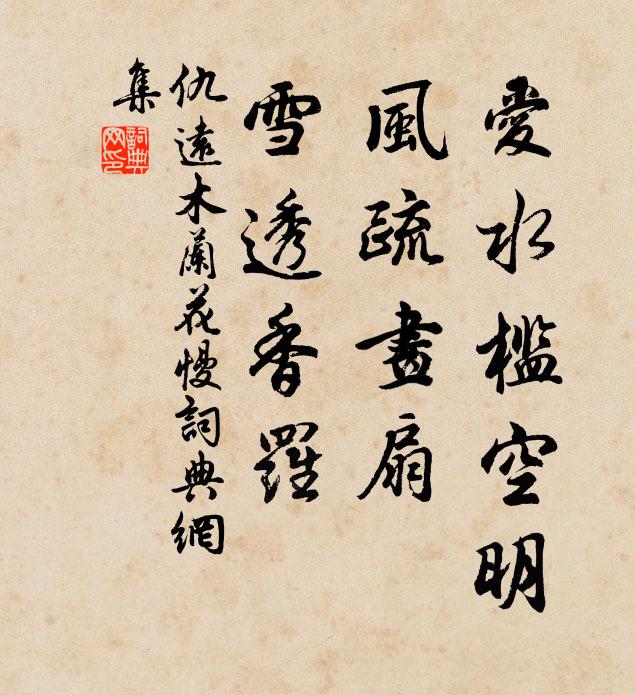 愛水檻空明
風疏畫扇
雪透香羅
仇遠木蘭花慢詞典網
集
詞典
网印